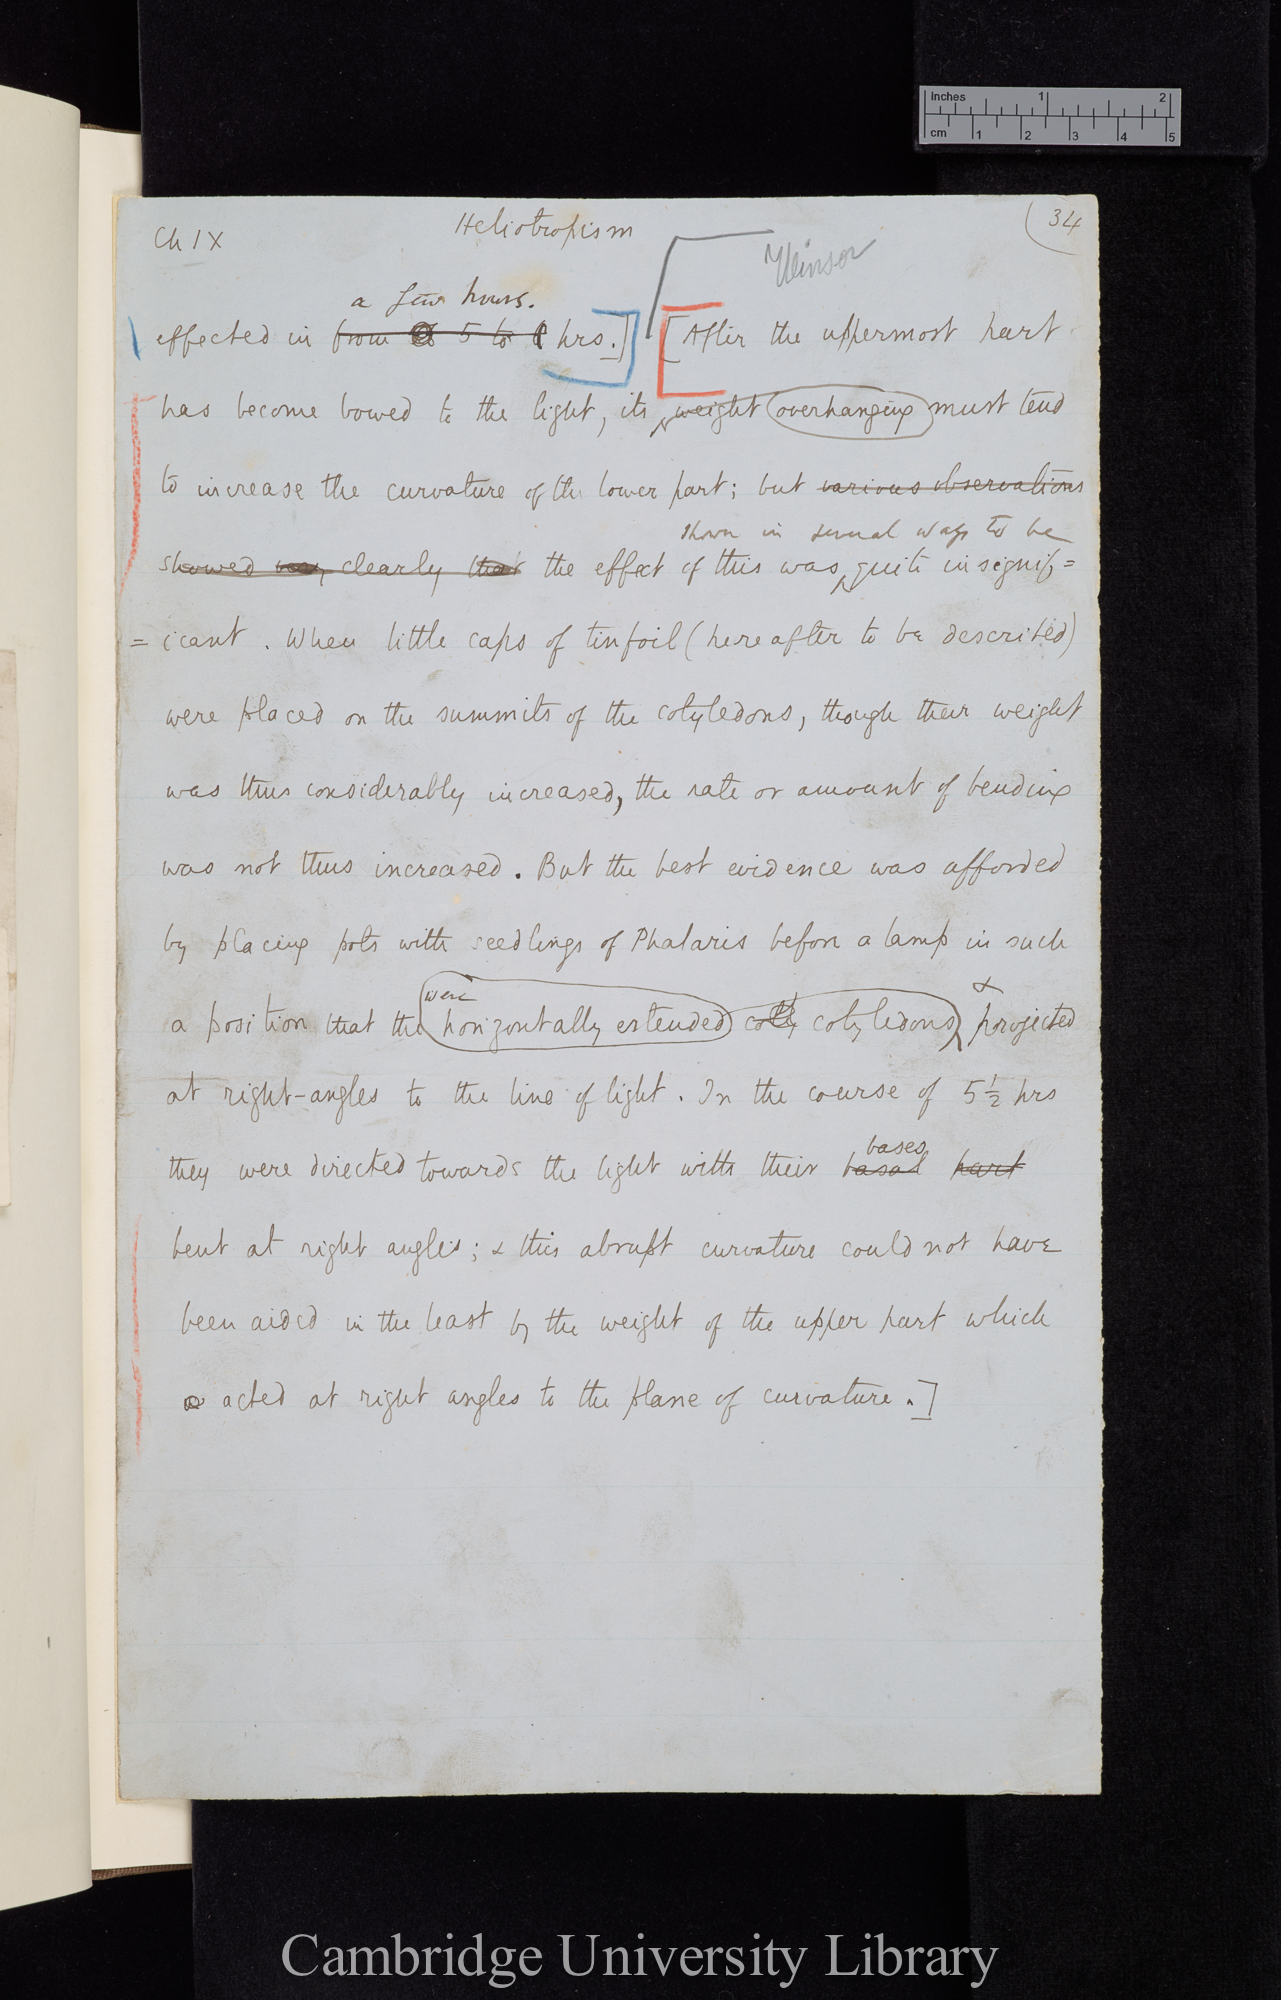 inches 1 2
cm 1 2 3 4 5
Ch IX Heliotropism 34
a few hours.
effected in from 5 to hrs.] [After the uppermost part
has become bowed to the light, its weight overhanging must tend
to increase the curvature of the lower part; but various observations
shown in several ways to be
showed clearly that the effect of this was quite insignif=
=icant. When little caps of tinfoil (hereafter to be described)
were placed on the summits of the cotyledons, though their weight
was thus considerably increased, the rate or amount of bending
was not thus increased. But the best evidence was afforded
by placing pots with seedlings of Phalaris before a lamp in such
were &
a position that the horizontally extended coty cotyledons projected
at right-angles to the line of light. In the course of 5½ hrs
bases
they were directed towards the light with their basal part
bent at right angles; & this abrupt curvature could not have
been aided in the least by the weight of the upper part which
acted at right angles to the plane of curvature.]
Cambridge University Library